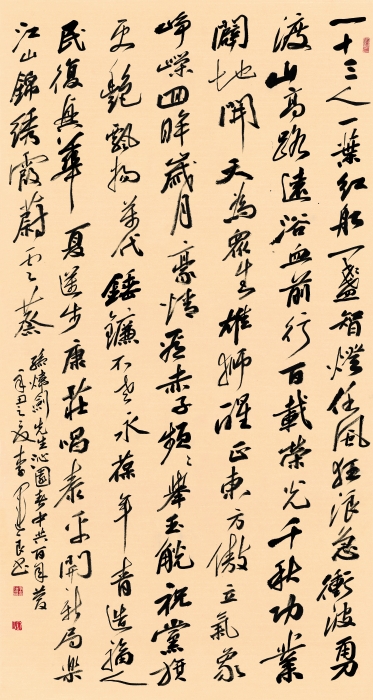 一十三人一葉红船一盞智燈任風狂浪急衝波勇
渡山高路遠浴血前行百載榮光千秋功業
闢地開天為眾生雄獅醒正東方傲立氣象
崢嶸回眸歲月豪情赤子頻々舉玉觥祝黨旗
更艷飄揚萬代錘鐮不老永葆年青造福人
民復興華夏步康莊唱泰平開新局樂
江山錦绣霞蔚雲蒸
孫劍先生沁園春中共百年
辛丑之夏李良書